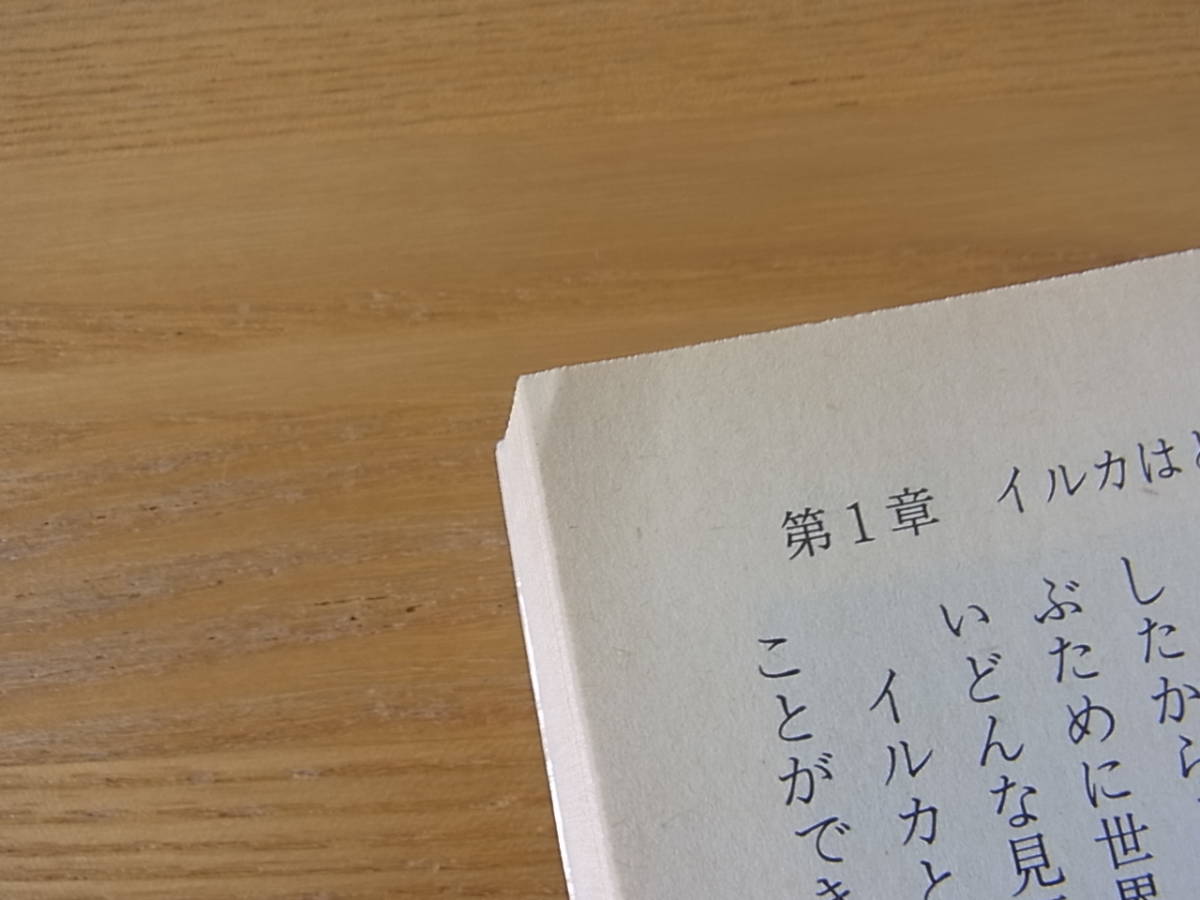 第1章　イルカはと
したから
ぶために世界
いどんな見
イルカと
ことができ